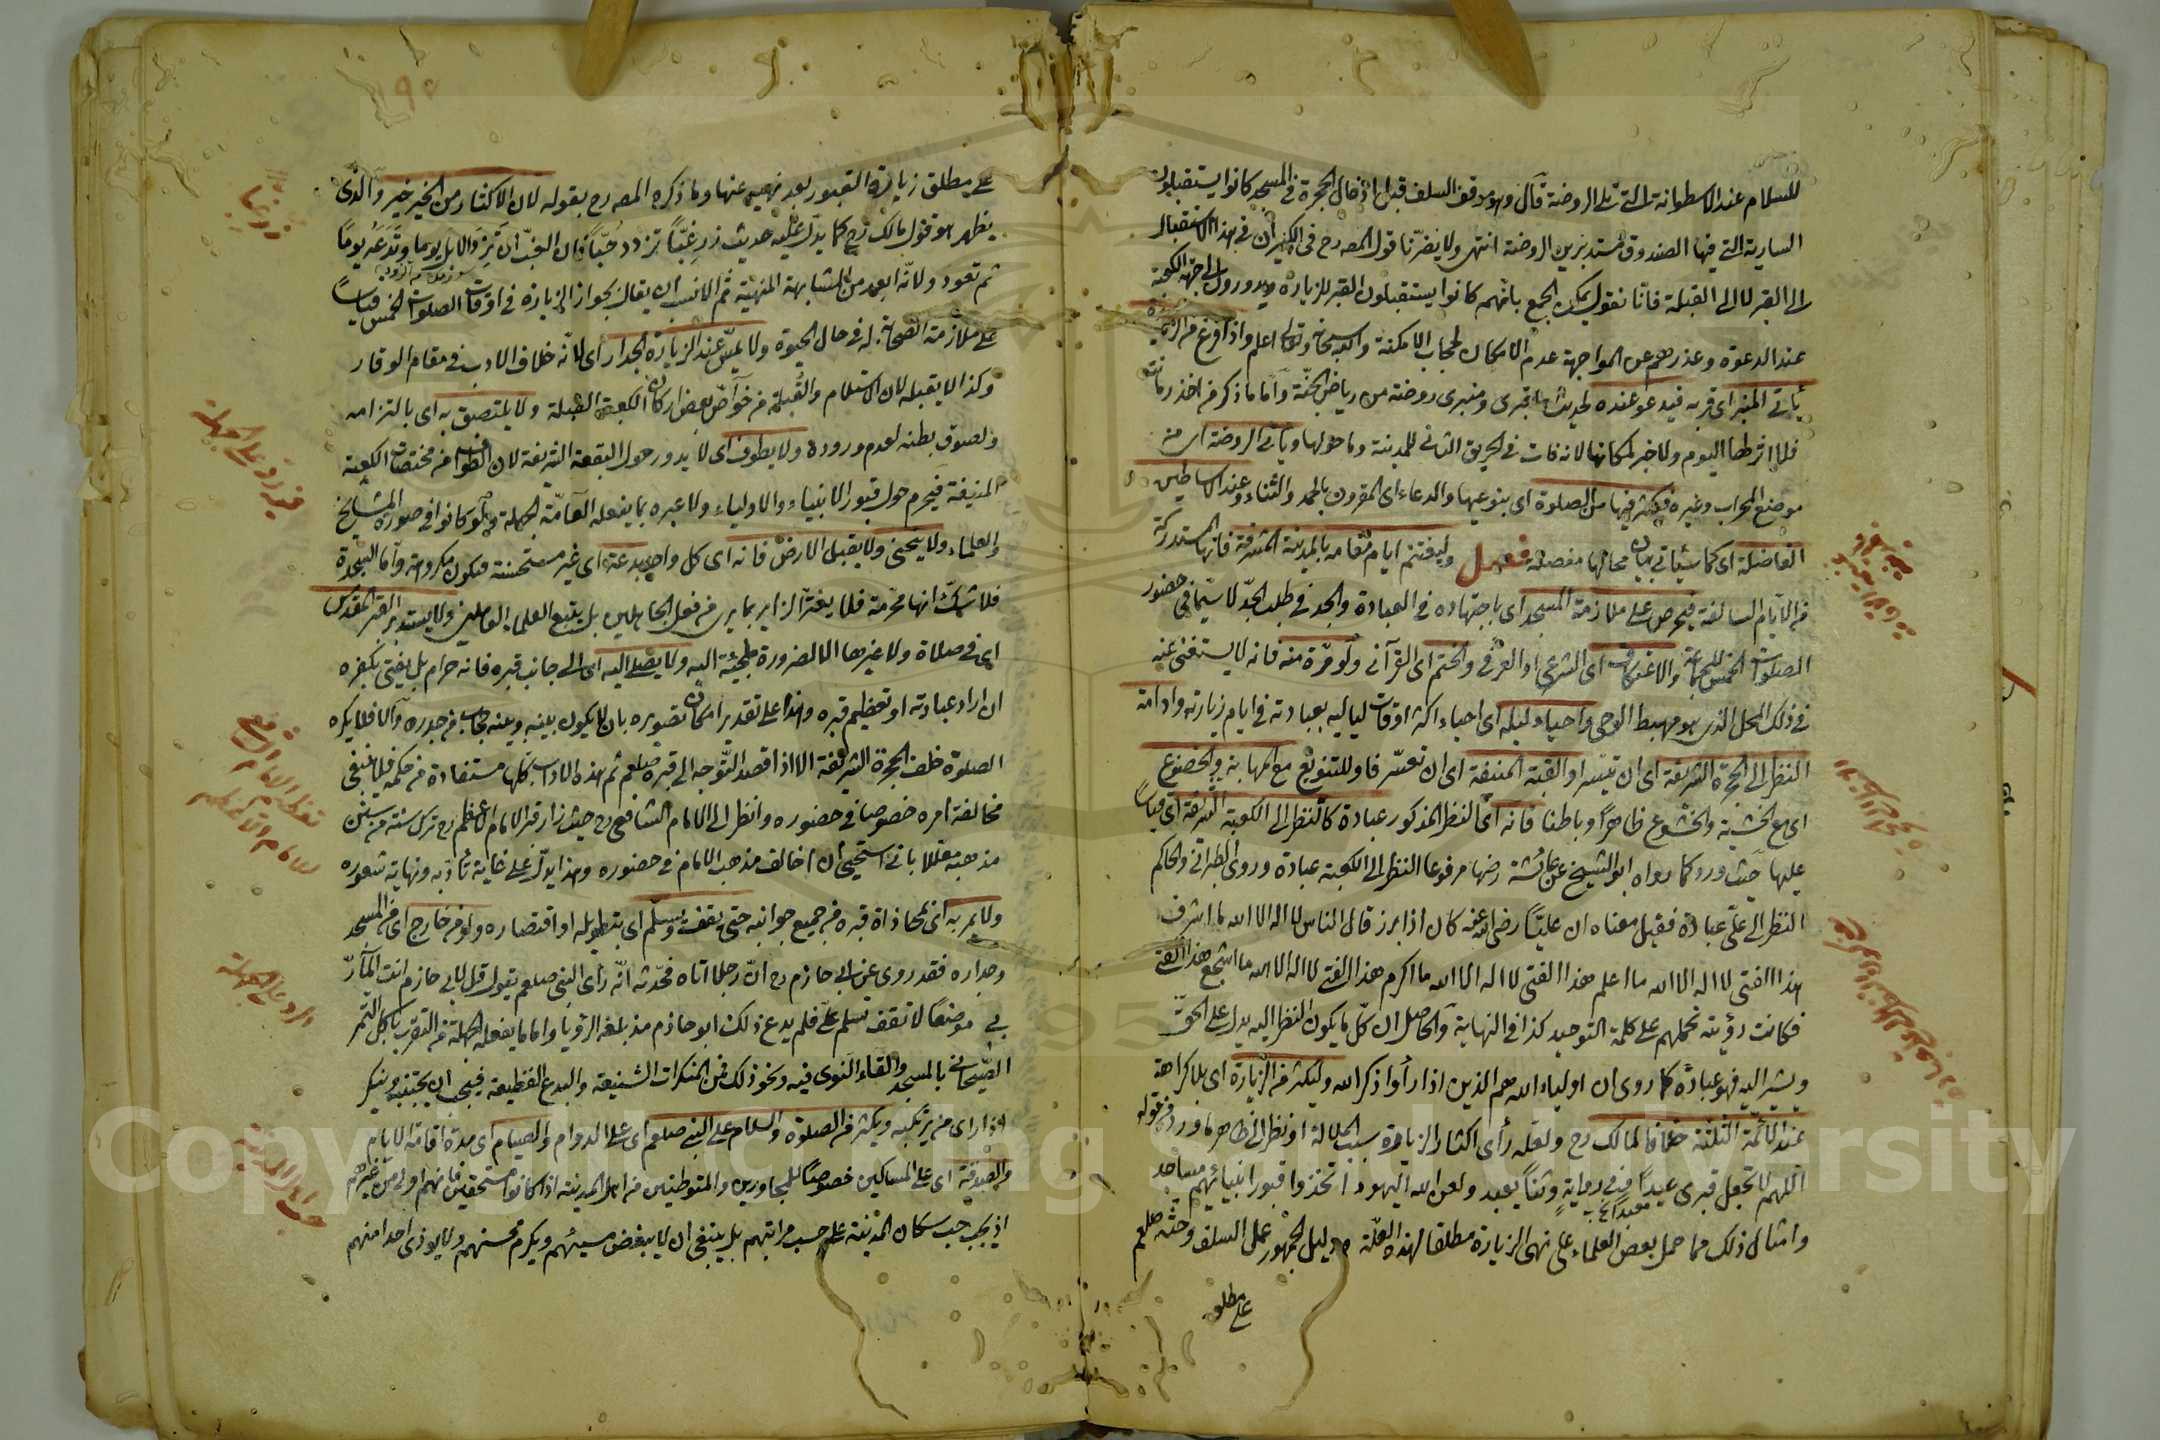 للسلام عند الاسطوانة التي تلي الروضة قال وهو موقف السلف قبل ادخال الحجرة في المسجد كانوا يستقبلون
السارية التي فيها الصندوق مستدبرين الروضة انتهى ولا يضرنا قول المصنف رح في الكبير ان في هذا الاستقبال
الى القبر لا الى القبلة فانا نقول يمكن الجمع بانهم كانوا يستقبلون القبر للزيارة ويدورون الى جهة الكعبة
عند الدعوة وعذرهم عن المواجهة عدم الامكان لحجاب الامكنة والله سبحانه وتعالى اعلم واذا فرغ من الزيارة
يأتي المنبر اى قربه فيدعو عنده لحديث ما بين قبرى ومنبرى روضة من رياض الجنة واما ما ذكر من اخذ رمانته
فلا اثر لها اليوم ولا خبر لمكانها لانه فات في الحريق الثاني للمدينة وما حولها ويأتي الروضة اى من
موضع المحراب وغيره فيكثر فيها من الصلوة اى بنوعيها والدعاء اى المقرون بالحمد والثناء وعند الاساطين
الفاضلة اى كما سيأتي بيان محالها مفصلة فصل وليغتنم ايام مقامه بالمدينة المشرفة فانها المستدركة
من الايام السالفة فيحرص على ملازمة المسجد اى باجتهاده في العبادة والجد في طلب الجد لا سيما في حضور
الصلوات الخمس للجماعة والاعتكاف اى الشرعي او العرفي والختم اى القرآني ولو مرة منه فانه لا يستغنى عنه
في ذلك المحل الذى هو مهبط الوحي واحياء ليله اى احياء اكثر اوقات لياليه بعبادته في ايام زيارته وادامة
النظر الى الحجرة الشريفة اى ان تيسر او القبة المنيفة اى ان تعسر فاو للتنويع مع المهابة والخضوع
اى مع الخشية والخشوع ظاهرا وباطنا فانه اى النظر المذكور عبادة كالنظر الى الكعبة الشريفة اى قياسا
عليها حيث ورد كما رواه ابو الشيخ عن عائشة رضها مرفوعا النظر الى الكعبة عبادة وروى الطبراني والحاكم
النظر الى علي عبادة فقيل معناه ان عليّا رضي الله عنه كان اذا برز قال الناس لا اله الا الله ما اشرف
هذا الفتى لا اله الا الله ما اعلم هذا الفتى لا اله الا الله ما اكرم هذا الفتى لا اله الا الله ما اشجع هذا الفتى
فكانت رؤيته تحملهم على كلمة التوحيد كذا في النهاية والحاصل ان كل ما يكون النظر اليه يدل على الحق
ويشير اليه فهو عبادة كما روى ان اولياء الله هم الذين اذا رأوا ذكر الله وليكثر من الزيارة اى بلا كراهة
عند الائمة الثلثة خلافا لمالك رح ولعله رأى اكثار الزيارة سبب الملالة او نظر الى ظاهر ما ورد من قوله
اللهم لا تجعل قبرى عيدا وفي رواية وثنا يعبد ولعن الله اليهود اتخذوا قبور انبيائهم مساجد
وامثال ذلك مما حمل بعض العلماء على نهي الزيارة مطلقا لهذه العلة ودليل الجمهور عمل السلف وحثه صلعم
على مطلق
على مطلق زيارة القبور بعد نهيه عنها وما ذكره المص رح بقوله لان الاكثار من الخير خير والذى
يظهر هو قول مالك رح كما يدل عليه حديث زر غبّا تزدد حبّا فان الغب ان ترد الابل يوما وتدعه يوما
ثم تعود ولانه ابعد من المشابهة المنهية ثم الانسب ان يقال بجواز الزيارة في اوقات الصلوات الخمس قياسا
على ملازمة الصحابة له في حال الحيوة ولا يمس عند الزيارة الجدار اى لانه خلاف الادب في مقام الوقار
وكذا لا يقبله لان الاستلام والقبلة من خواص بعض اركان الكعبة القبلة ولا يلتصق به اى بالتزامه
ولصوق بطنه لعدم وروده ولا يطوف اى لا يدور حول البقعة الشريفة لان الطواف من مختصات الكعبة
المنيفة فيحرم حول قبور الانبياء والاولياء ولا عبره بما يفعله العامة الجهلة ولو كانوا في صورة المشايخ
والعلماء ولا ينحني ولا يقبل الارض فانه اى كل واحد بدعة اى غير مستحسنة فيكون مكروهة واما السجدة
فلا شك انها محرمة فلا يغتر الزاير بما يرى من فعل الجاهلين بل يتبع العلماء العاملين ولا يستدبر القبر المقدس
اى في صلاة ولا غيرها الا لضرورة ملجئة اليه ولا يصلي اليه اى الى جانب قبره فانه حرام بل يفتى بكفره
ان اراد عبادته او تعظيم قبره وهذا على تقدير امكان تصويره بان لا يكون بينه وبينه حجاب من جدره والا فلا يكره
الصلوة خلف الحجرة الشريفة الا اذا قصد التوجه الى قبره صلعم ثم هذه الاداب كلها مستفادة من حكمه فلا ينبغي
مخالفة امره خصوصا في حضوره وانظر الى الامام الشافعي رح حيث زار قبر الامام الاعظم رح ترك سنة من سنن
مذهبه معللا باني استحيى ان اخالف مذهب الامام في حضوره وهذا يدل على غاية تأدبه ونهاية شعوره
ولا يمر به اى بمحاذاة قبره من جميع جوانبه حتى يقف ويسلم اى بتطويله او اقتصاره ولو من خارج اى من المسجد
وجداره فقد روى عن ابي حازم رح ان رجلا اتاه فحدثه انه رأى النبي صلعم يقول قل لابي حازم انت المار
بي موضعا لا تقف تسلم علي فلم يدع ذلك ابو حازم منذ بلغه الرؤيا واما ما يفعله الجهلة من التقرب باكل التمر
الصيحاني بالمسجد والقاء النوى فيه ونحو ذلك فمن المنكرات الشنيعة والبدع الفظيعة فيجب ان يجتنبه وينكر
اذا رأى من يرتكبه ويكثر من الصلوة والسلام على النبي صلعم اى على الدوام والصيام اى مدة اقامة الايام
والصدقة اى على المساكين خصوصا للمجاورين والمتوطنين من اهل المدينة اذا كانوا مستحقين فانهم اولى من غيرهم
اذ يجب حب سكان المدينة على حسب مراتبهم بل ينبغي ان لا يبغض مسيئهم ويكرم محسنهم ولا يوذى احدا منهم